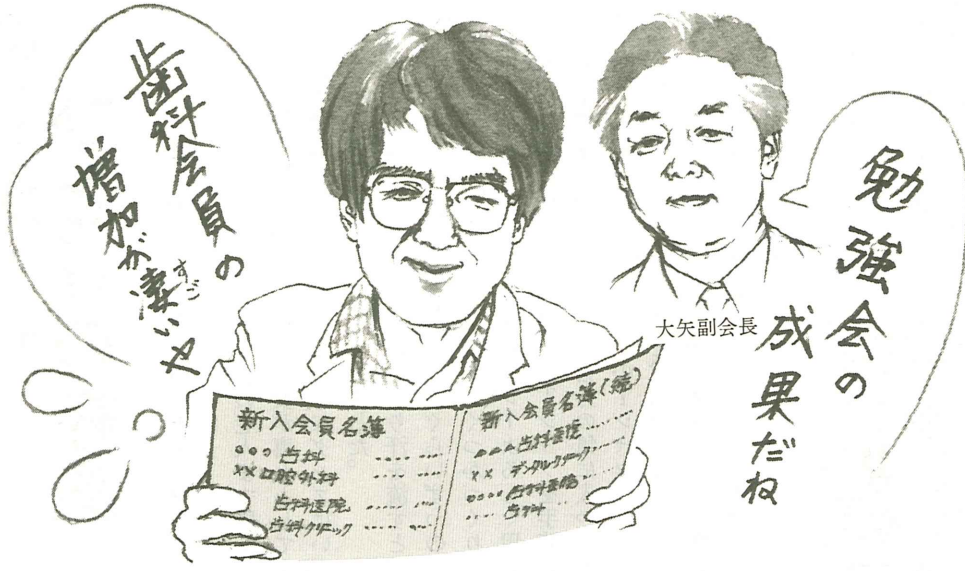 歯科会員の
増加が凄いや
すご
勉強会の
成果だね
大矢副会長
新入会員名簿
○○○歯科 ‥‥ ‥‥
××口腔外科 ‥‥ ‥‥
歯科医院 ‥‥‥ ‥‥
歯科クリニック ‥‥‥ ‥‥
新入会員名簿(続)
△△△歯科医院‥‥‥
×× デンタルクリニック‥‥‥
○○○○歯科医院‥‥‥
‥‥ 歯科‥‥‥